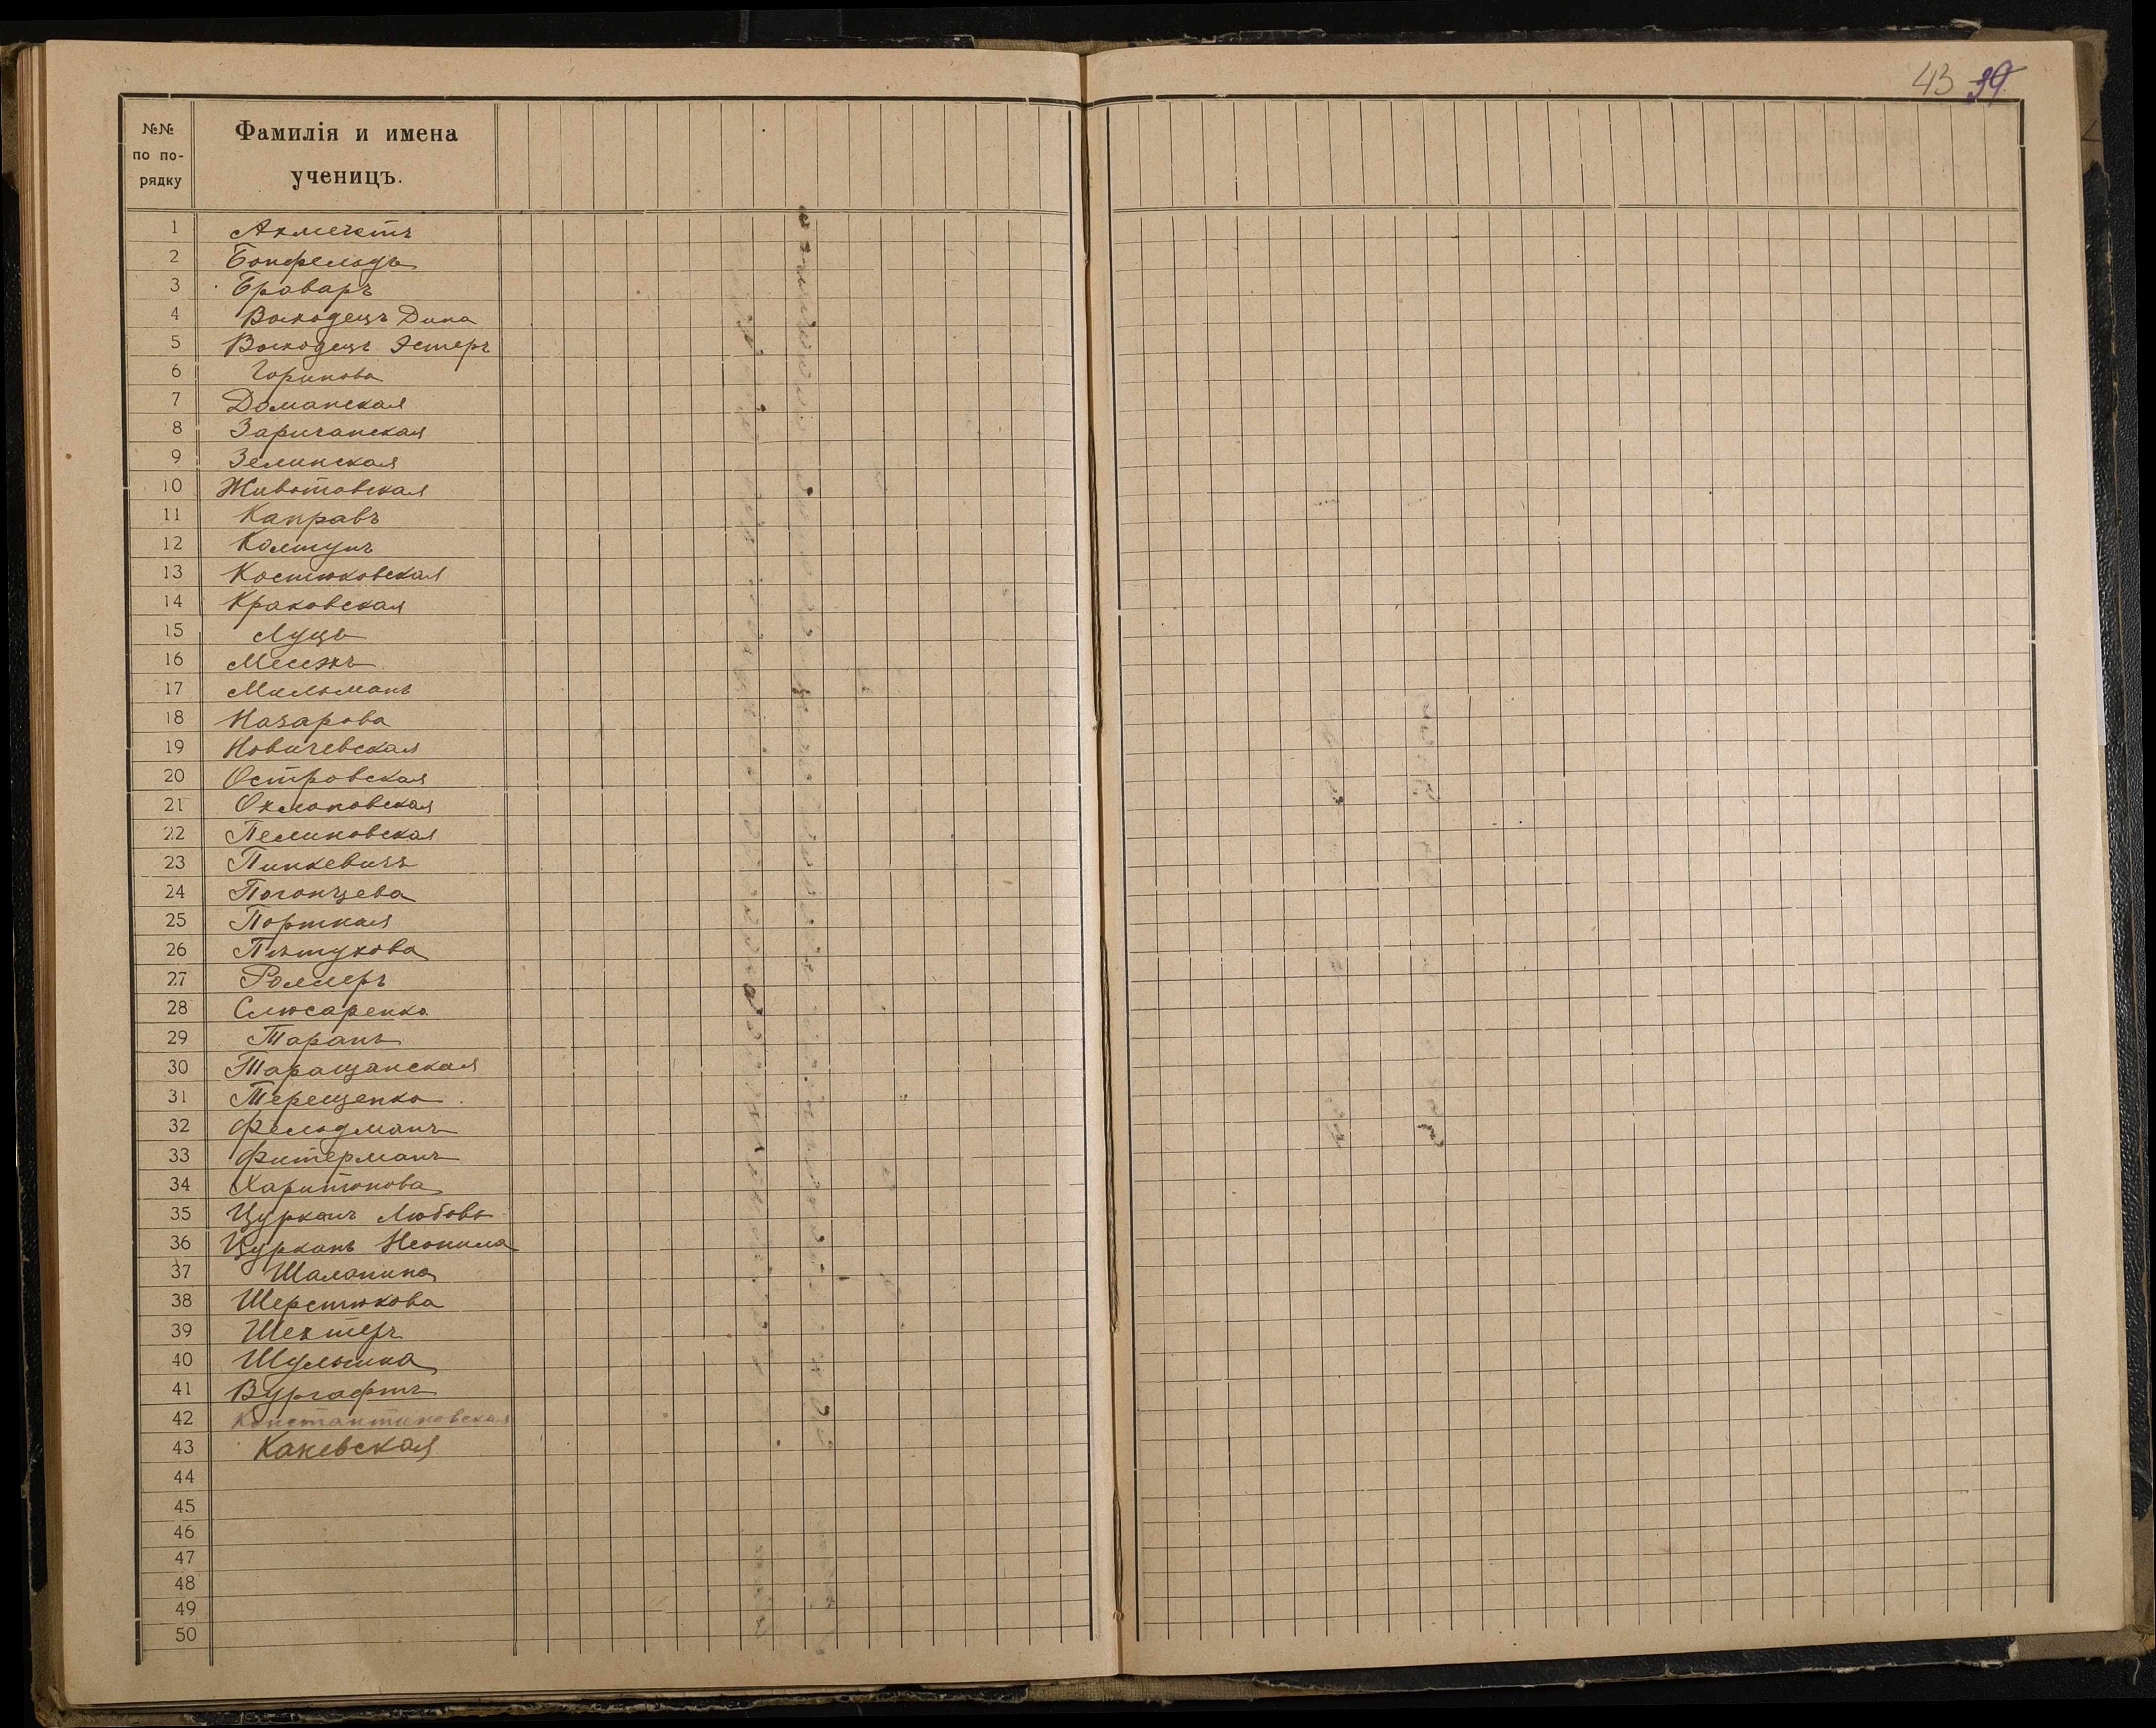 43 39
№№ по по-рядку
Фамилія и имена ученицъ.
1 Ахмектъ
2 Бонфельдъ
3 Браваръ
4 Выходецъ Дина
5 Выходецъ Эстеръ
6 Горинова
7 Доманская
8 Заричанская
9 Зелинская
10 Животовская
11 Каправъ
12 Колтунъ
13 Костюковская
14 Краковская
15 Луць
16
17 Мильманъ
18 Назарова
19 Новичевская
20 Островская
21 Охмоновская
22 Пелиновская
23 Пинкевичъ
24 Погонцева
25 Портная
26 Пѣтухова
27 Роллеръ
28 Слюсаренко
29 Таранъ
30 Таращанская
31 Терещенко
32 Фельдманъ
33 Фитерманъ
34 Харитонова
35 Цурканъ Любовь
36 Цурканъ Неонила
37 Шаланина
38 Шерстюкова
39 Шехтеръ
40 Шульгина
41 Вургафтъ
42 Константиновская
43 Каневская
44
45
46
47
48
49
50